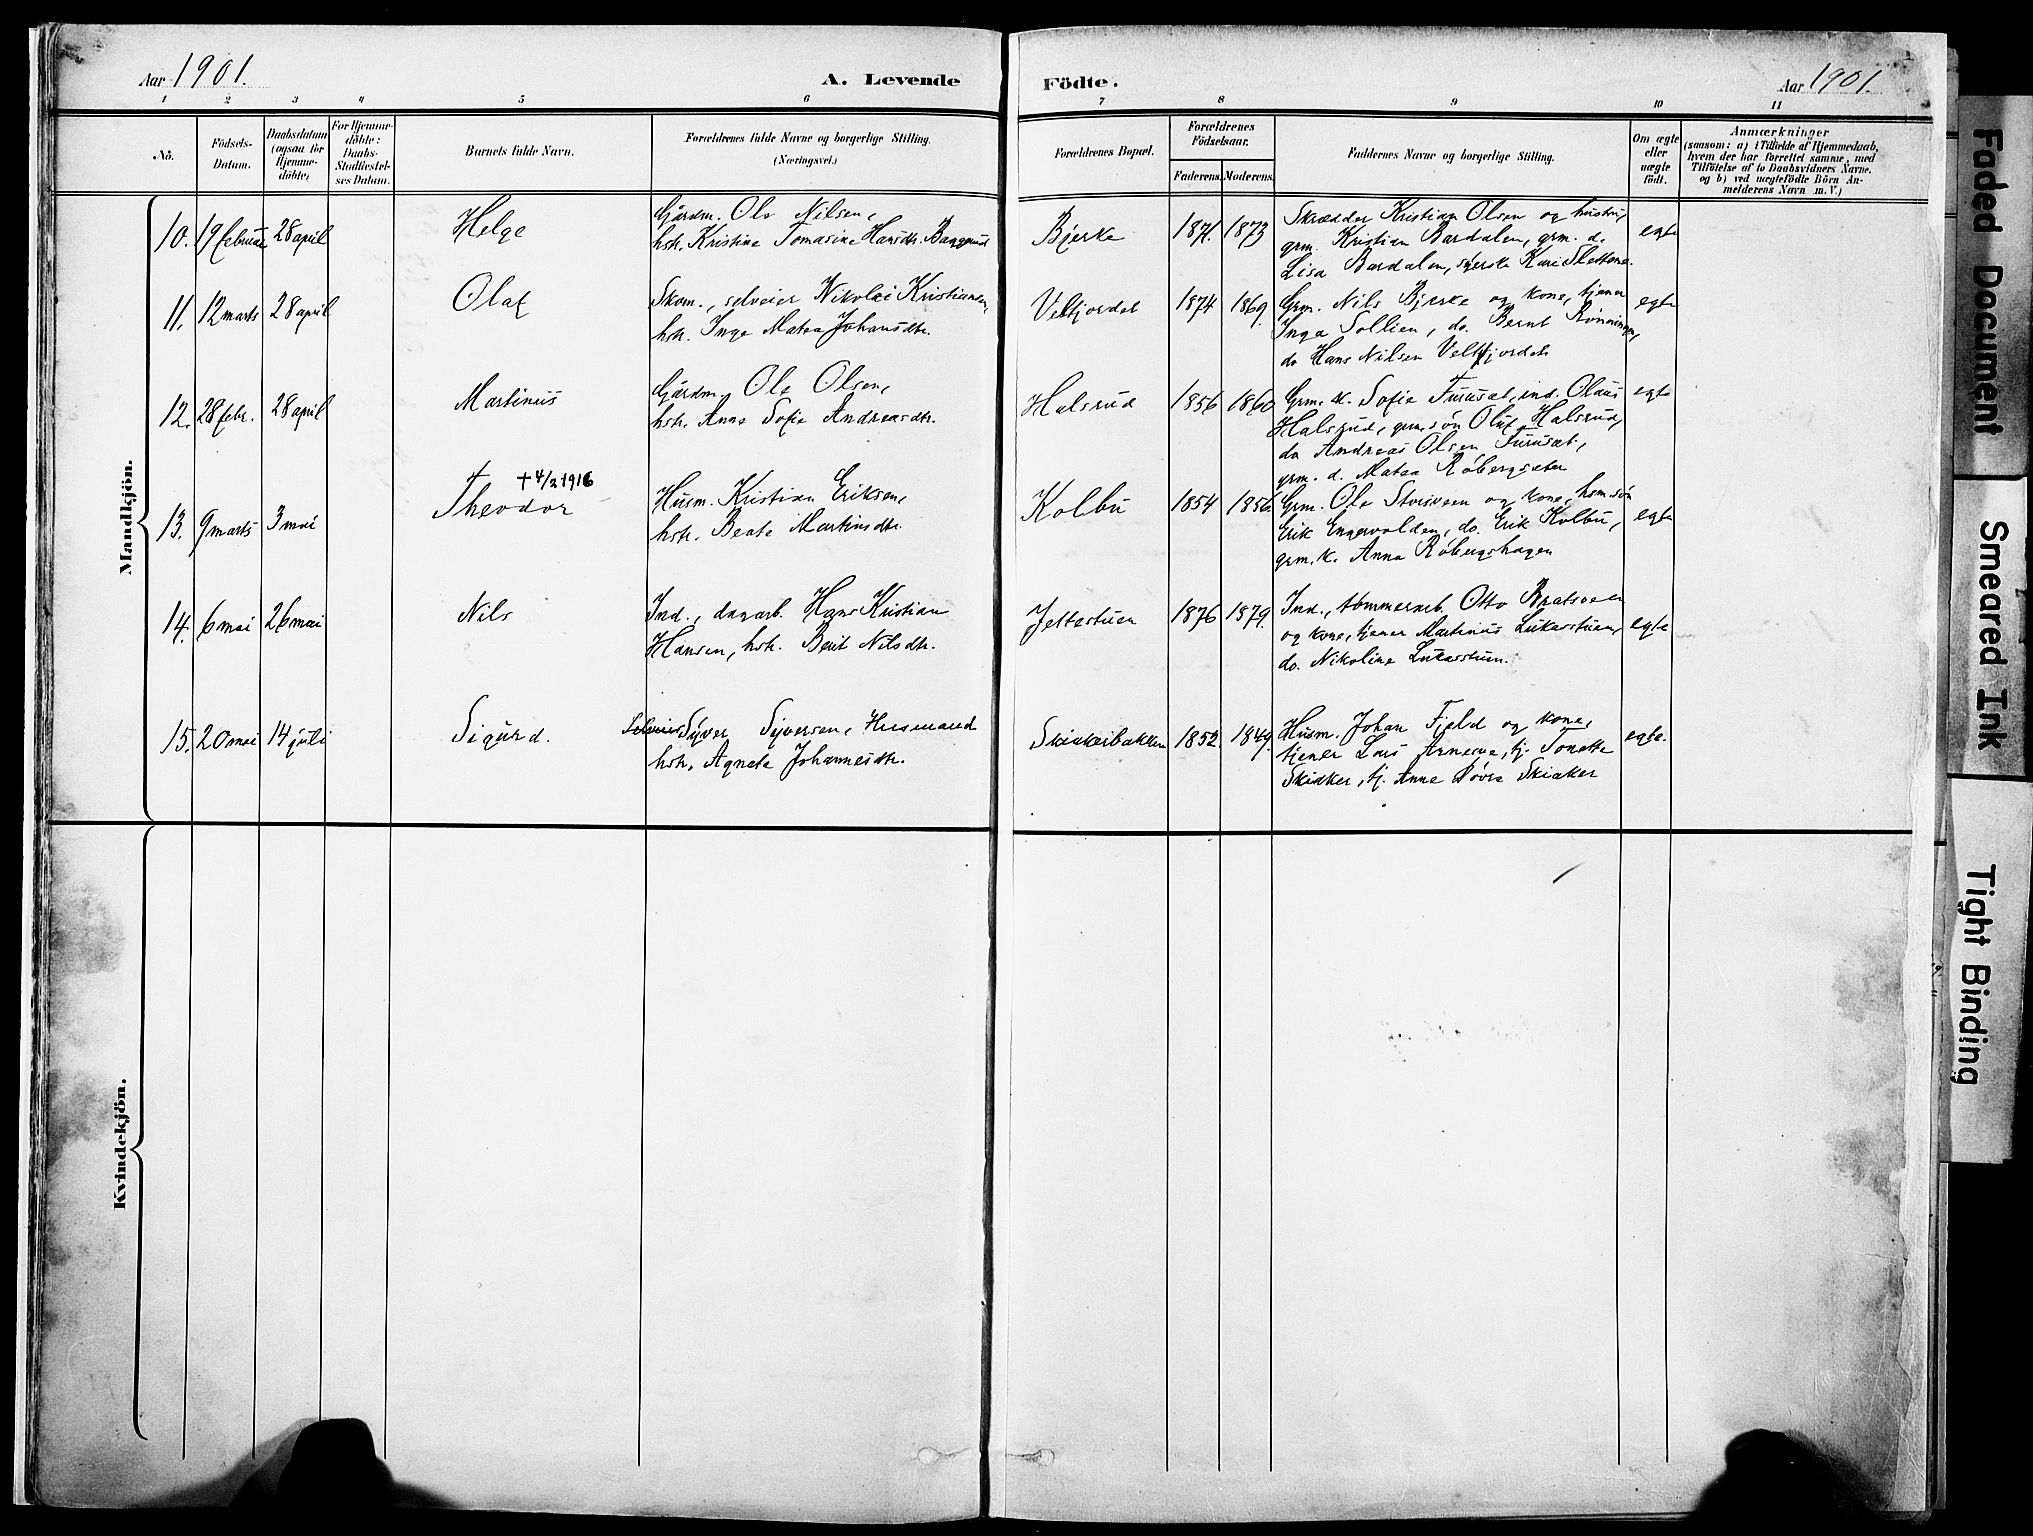 Aar 1901.
A. Levende Födte.
Aar 1901.
1 2 3 4 5 6 7 8 9 10 11
No.
Födsels-Datum.
Daabsdatum (ogsaa for Hjemme-döbte)
For Hjemme-döbte: Daabs-Stadfæstel-ses Datum.
Barnets fulde Navn.
Forældrenes fulde Navne og borgerlige Stilling.
(Næringsvei.)
Forældrenes Bopæl.
Forældrenes Födselsaar.
Faderens. Moderens.
Faddernes Navne og borgerlige Stilling.
Om ægte eller uægte födt.
Anmærkninger
(saasom: a) i Tilfælde af Hjemmedaab,
hvem der har forrettet samme, med
Tilföielse af to Daabsvidners Navne.
og b) ved uægtefödte Börn An-
melderens Navn m. V.)
Mandkjön.
10. 19 februar 28 april Helge
Gårdm. Ole Nilsen,
hstr. Kristine Tomasine Hansdtr.
Bjerke 1871. 1873
Skrædder Kristian Olsen og hustru,
grm. Kristian Bardalen, grm. d.
Lisa Bardalen, Kari Slettene.
egte
11. 12 marts 28 april Olaf
Skom., selveier Nikolai Kristiansen,
hstr. Inge Matea Johansdtr.
Veltjordet 1874 1869.
Grm. Nils Bjerke og kone, tjener
Inga Sollien, do. Bernt Rønningen,
do Hans Nilsen Veltjordet
egte
12. 28 febr. 28 april Martinus
Gårdm. Ole Olsen,
hstr. Anne Sofie Andreasdtr.
Halsrud 1856 1860
Grm. k. Sofie Furuset, ind. Olaus
Halsrud, grm. søn Oluf Halsrud,
do Andreas Olsen Furuset,
grm. d. Matea Røbergseter
egte
13. 9 marts 3 mai Theodor
+ 4/2 1916
Husm. Kristian Eriksen,
hstr. Beate Martinsdtr.
Kolbu 1854 1856
Grm. Ole Storsveen og kone, hsm. søn
Erik Engevolden, do. Erik Kolbu,
grm. k. Anna Røbergshagen
egte
14. 6 mai 26 mai Nils
Ind., dagarb. Hans Kristian
Hansen, hstr. Berit Nilsdtr.
Jettestuen 1876 1879.
Ind., tømmerarb. Otto Bratsveen
og kone, tjener Martinus Lukasstuen,
do. Nikoline Lukasstuen.
egte
15. 20 mai 14 juli Sigurd.
Selveier Syver Syversen, Husmand
hstr. Agnete Johannesdtr.
Skiakerbakken 1852. 1849.
Husm. Johan Fjeld og kone,
tjener Lars, tj. Tonette
Skiaker, tj. Anne Døvre Skiaker
egte.
Kvindekjön.
Faded Document
Smeared Ink
Tight Binding